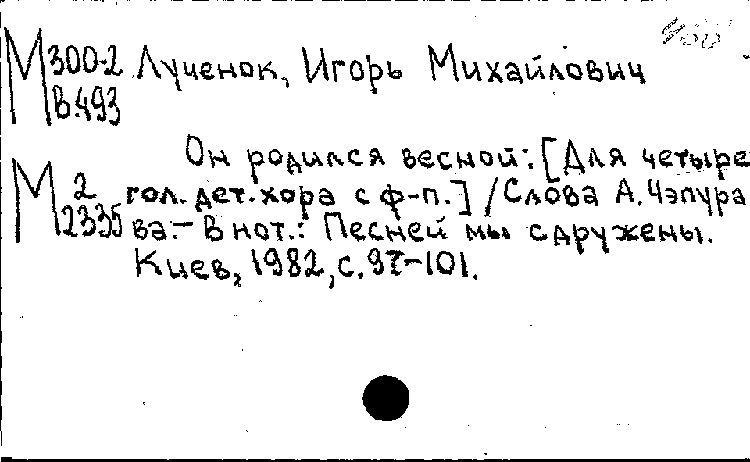 М 300-2 Лученок, Игорь Михайлович
В.493
Он родился весной: [Для четыре
М 2 гол. дет. хора с ф-п.] / Слова А. Чэпура
2335 ва.- В нот.: Песней мы сдружены.
Киев, 1982, с. 97-101.